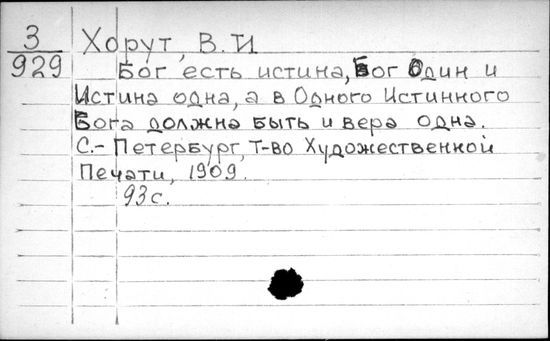 3
929
Хорут, В. И
Бог есть истина, Бог Один и
Истина одна, а в Одного Истинного
Бога должна быть и вера одна.
С.- Петербург, Т-во Художественной
Печати, 1909.
93 с.